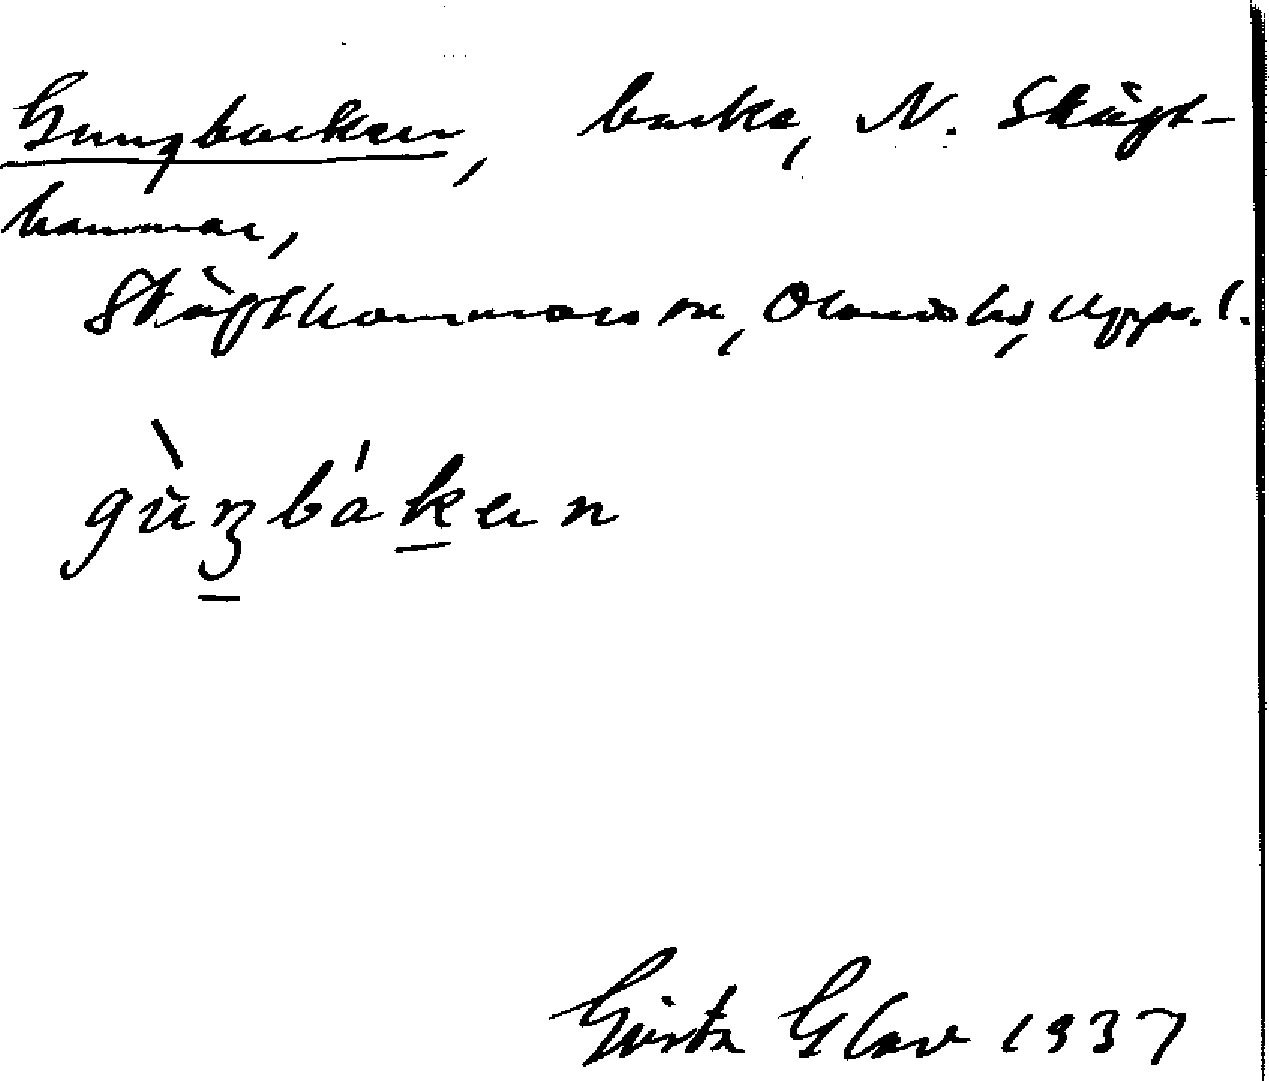 Gungbacken, backe, N. Skägt-
hammar,
Skäfthammars sn, Olands hd, Upps. l.
gùŋbákən
Gösta Glav 1937